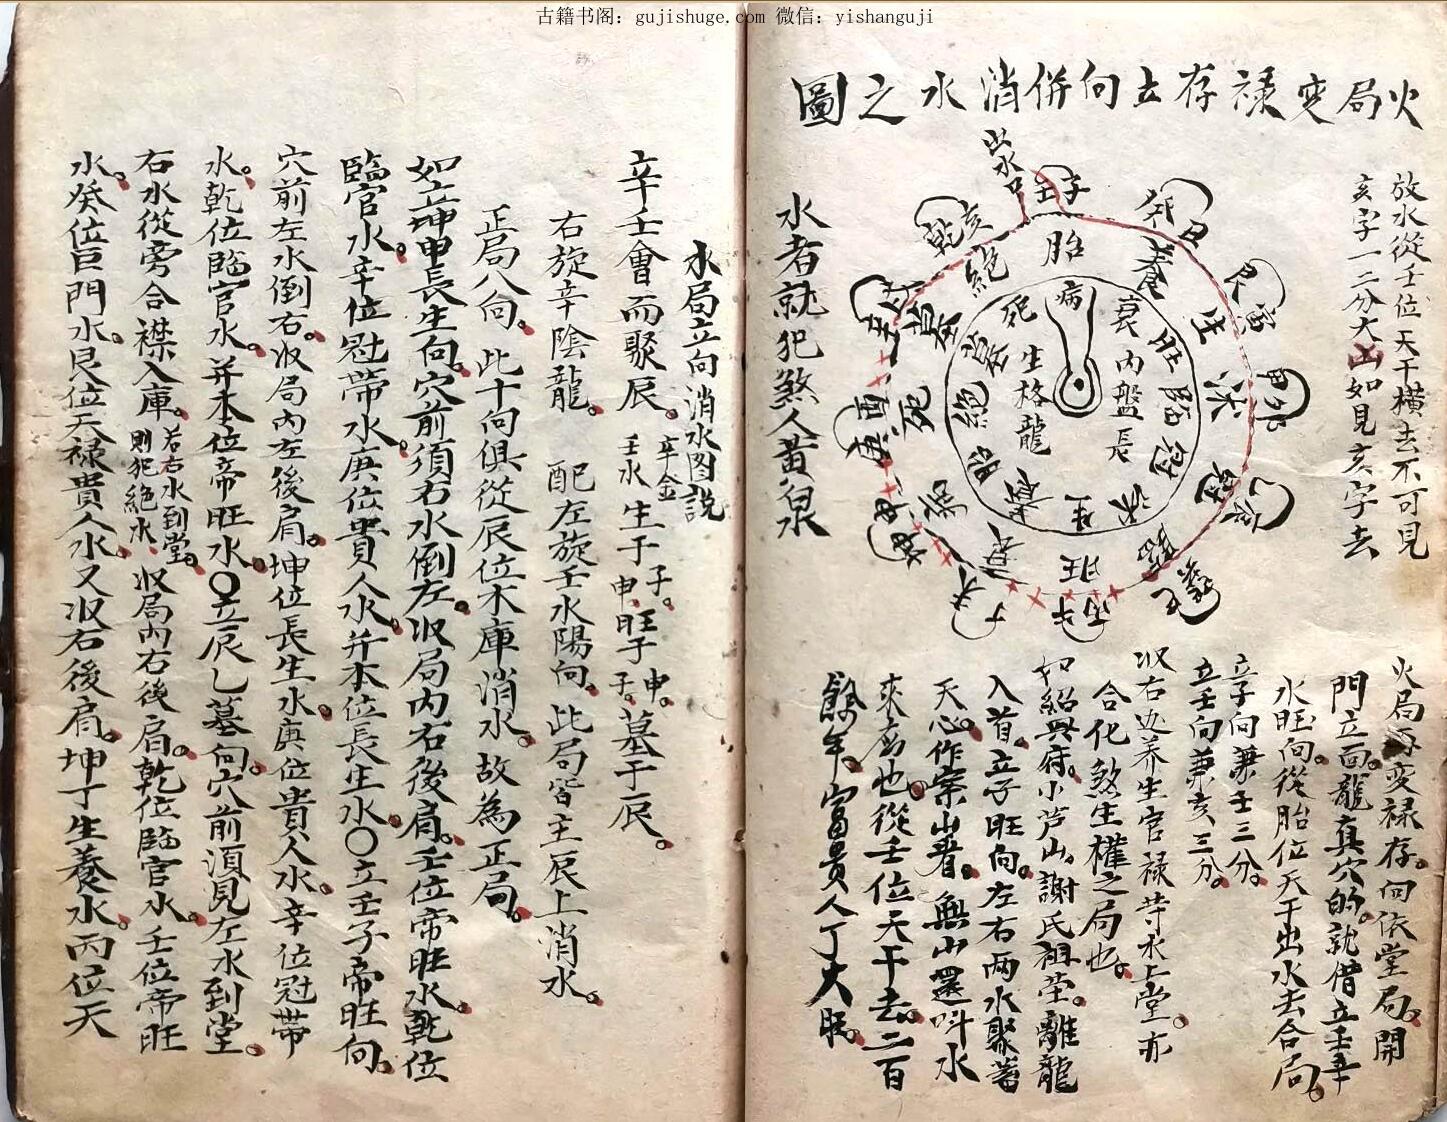 古籍书阁：gujishuge.com 微信：yishanguji
火局变禄存立向併消水之圖
放水從壬位天干橫去不可見
亥字一二分大凶如見亥字去
出水口
壬子
癸丑
艮寅
甲卯
乙辰
巽巳
丙午
丁未
坤申
庚酉
辛戌
乾亥
胎
養
生
沐
冠
臨
旺
衰
病
死
墓
絕
病
衰
旺
臨
冠
沐
生
養
胎
絕
墓
死
內盤長
生格龍
水者就犯煞人黃泉
火局再变禄存向依堂局開
門立面龍真穴的就借立壬子
水旺向從胎位天干出水去合局
立子向兼壬三分
立壬向兼亥三分
収右边养生官禄等水上堂亦
合化煞生權之局也
如紹興府小芦山謝氏祖茔離龍
入首立子旺向左右兩水聚蓄
天心作案山者無山還叫水
來為也從壬位天干去二百
餘年富貴人丁大旺
水局立向消水图説
辛壬會而聚辰辛金壬水生于子申旺于申子墓于辰
右旋辛陰龍 配左旋壬水陽向此局皆主辰上消水
正局八向此十向俱從辰位本庫消水故為正局
如立坤申長生向穴前須右水倒左収局內右後肩壬位帝旺水乾位
臨官水辛位冠帶水庚位貴人水并本位長生水〇立壬子帝旺向
穴前左水倒右収局內左後肩坤位長生水庚位貴人水辛位冠帶
水乾位臨官水并本位帝旺水〇立辰乙墓向穴前須見左水到堂
右水從旁合襟入庫若右水到堂則犯絕水収局內右後肩乾位臨官水壬位帝旺
水癸位巨門水艮位天禄貴人水又収右後肩坤丁生養水丙位天